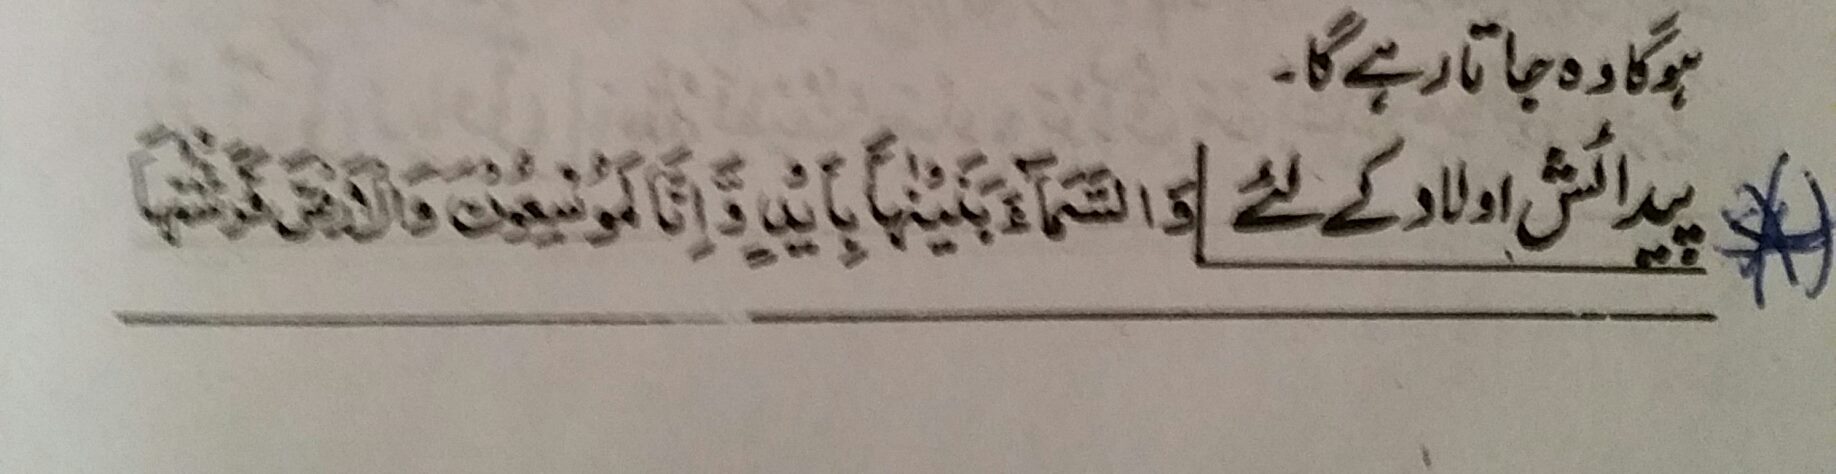 ہوگا وہ جاتا رہے گا۔
پیدائش اولاد کے لئے وَالسَّمَآءَ بَنَيْنٰهَا بِاَيْىدٍ وَّاِنَّا لَمُوْسِعُوْنَ وَالْاَرْضَ فَرَشْنٰهَا